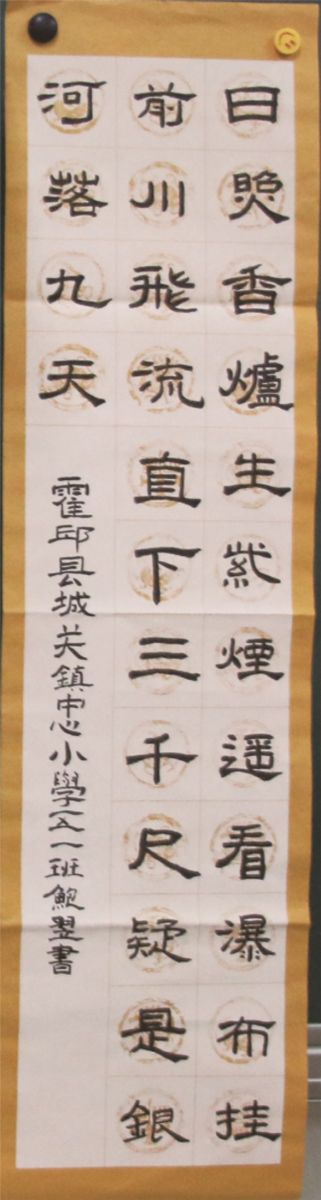 日照香爐生紫煙遥看瀑布挂
前川飛流直下三千尺疑是銀
河落九天
霍邱县城关鎮中心小學五一班鮑翌書